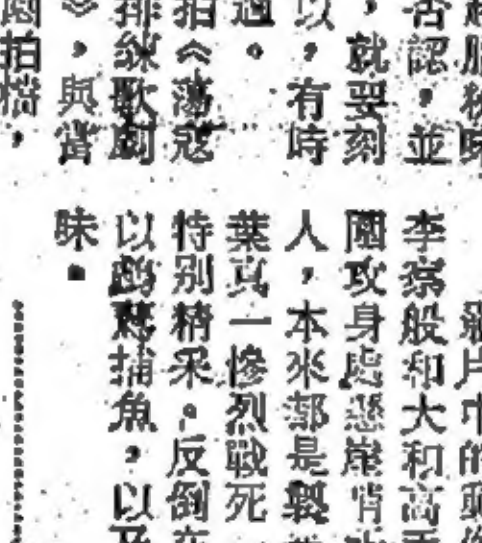 否認，並
，就要刻
以，有時
過。
拍《蕩寇
排練歌劇
》，與當
劇拍檔，
片中的
李察般和大和高
攻身處懸崖峭
人，本來都是製
葉真一慘烈戰死
特別精采。反倒在
以鸕鶿捕魚，以及
味。